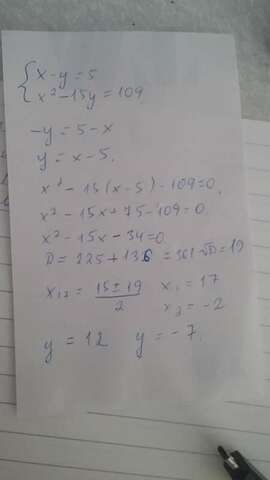 x - y = 5
x² - 15y = 109
-y = 5 - x
y = x - 5.
x² - 15(x - 5) - 109 = 0.
x² - 15x + 75 - 109 = 0.
x² - 15x - 34 = 0.
D = 225 + 136 = 361 √D = 19
x₁,₂ = (15 ± 19)/2 x₁ = 17
x₂ = -2
y = 12 y = -7.